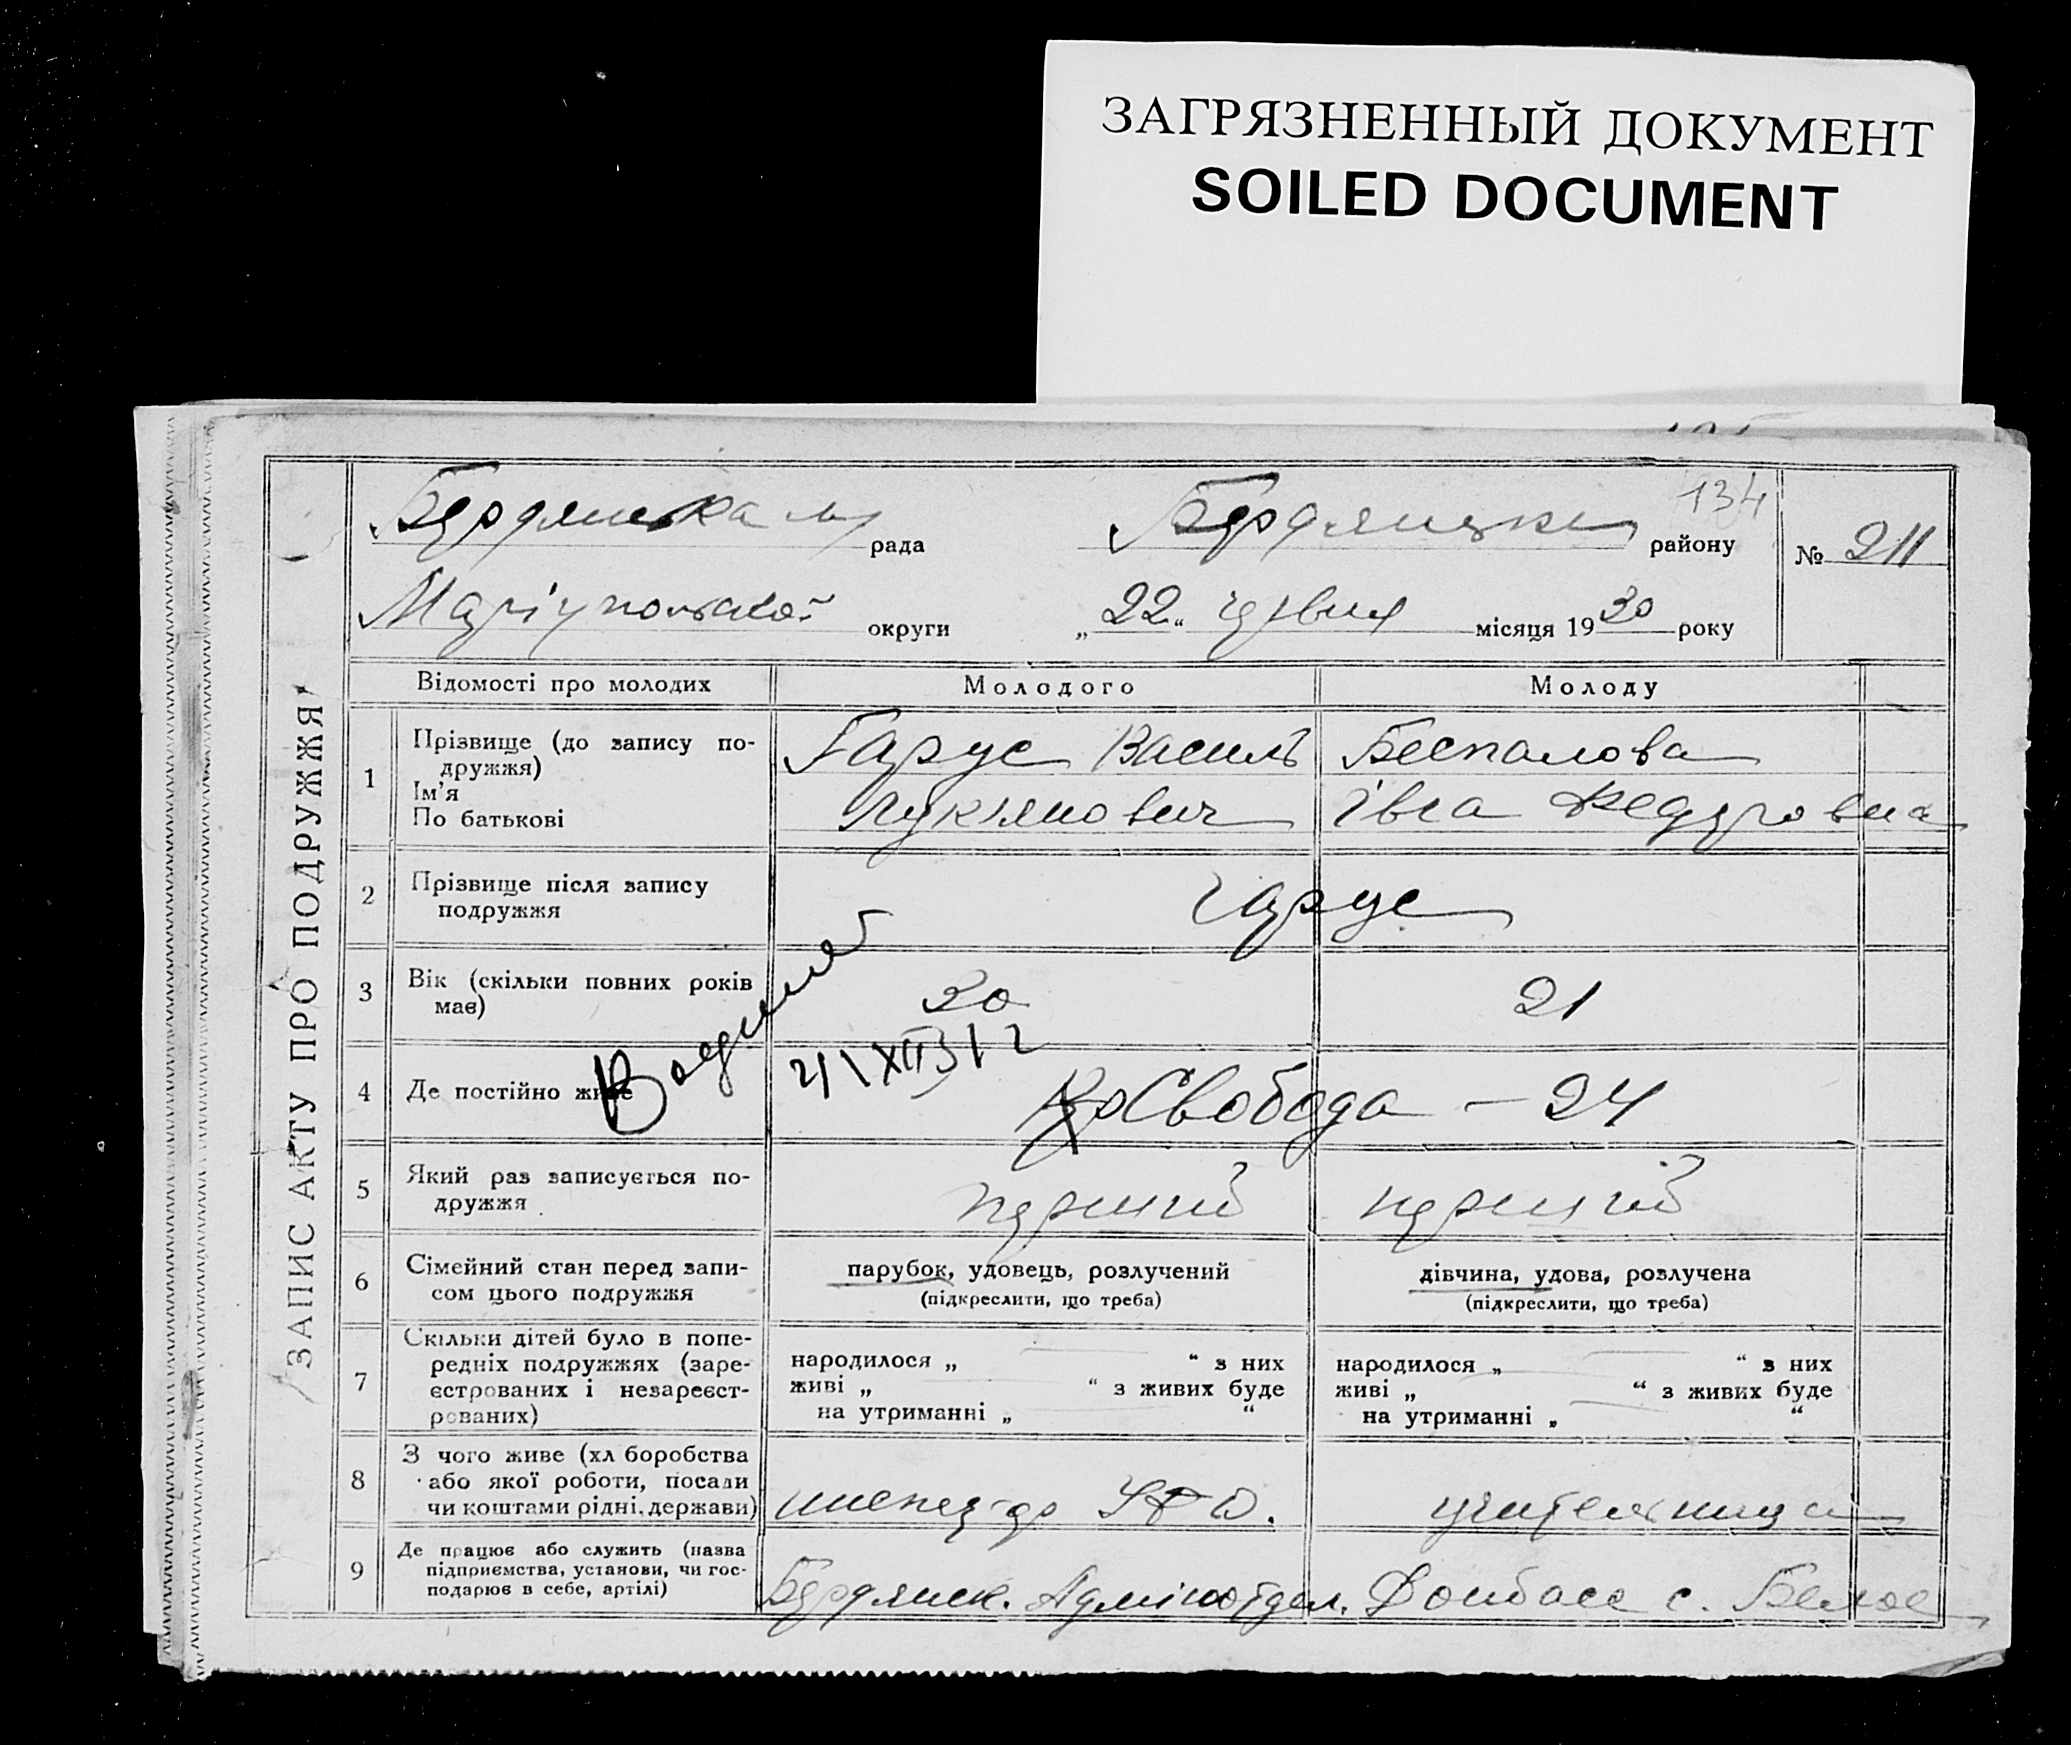 ЗАГРЯЗНЕННЫЙ ДОКУМЕНТ
SOILED DOCUMENT
134
Бердянська м рада Бердянськ району № 211
Маріупольської округи „ 22 “ червня місяця 1930 року
ЗАПИС АКТУ ПРО ПОДРУЖЖЯ
Відомості про молодих Молодого Молоду
1 Прізвище (до запису по-
дружжя)
Ім'я
По батькові
Гарус Василь
Лукянович
Беспалова
Івга Федоровна
2 Прізвище після запису
подружжя
Гарус
3 Вік (скільки повних років
має)
30 21
4 Де постійно живе
Свобода – 24
5 Який раз записується по-
дружжя
перший перший
6 Сімейний стан перед запи-
сом цього подружжя
парубок, удовець, розлучений
(підкреслити, що треба)
дівчина, удова, розлучена
(підкреслити, що треба)
7 Скільки дітей було в попе-
редніх подружжях (заре-
єстрованих і незареєст-
рованих)
народилося „ “ з них
живі „ “ з живих буде
на утриманні „ “
народилося „ “ з них
живі „ “ з живих буде
на утриманні „ “
8 З чого живе (хліборобства
або якої роботи, посади
чи коштами рідні, держави)
учителница
9 Де працює або служить (назва
підприємства, установи, чи гос-
подарює в себе, артілі)
Бердянск. Адмінотдел. Донбасс с. Белое